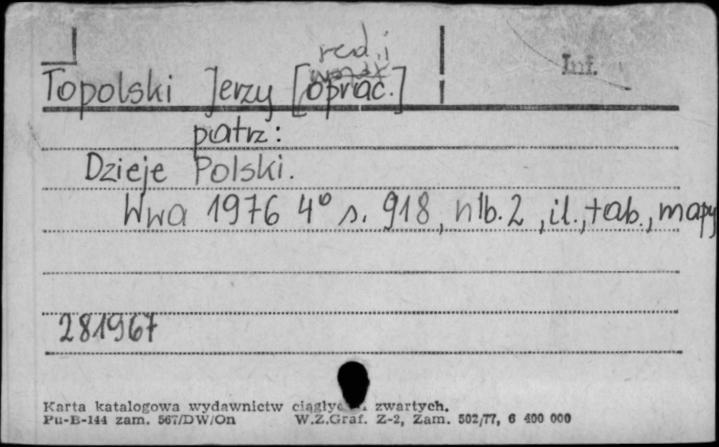 red. i
Inf.
Topolski Jerzy [oprac.]
patrz:
Dzieje Polski.
Wwa 1976 4° s. 918, nlb. 2, il., tab., mapy
281967
Karta katalogowa wydawnictw zwartych.
Pu-B-144 zam. 567/DW/On W.Z.Graf. Z-2, Zam. 502/77, 6 400 000